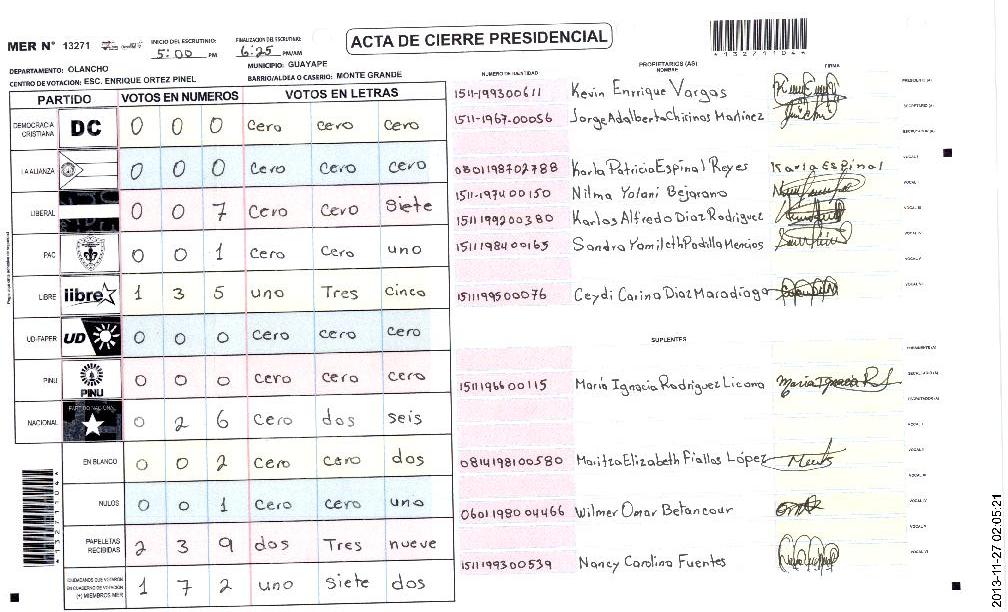 MER N° 13271
INICIO DEL ESCRUTINIO: 5:00 PM
FINALIZACION DEL ESCRUTINIO: 6:25 PM/AM
ACTA DE CIERRE PRESIDENCIAL
4132711044
DEPARTAMENTO: OLANCHO
MUNICIPIO: GUAYAPE
CENTRO DE VOTACION: ESC. ENRIQUE ORTEZ PINEL
BARRIO/ALDEA O CASERIO: MONTE GRANDE
PARTIDO VOTOS EN NUMEROS VOTOS EN LETRAS
DEMOCRACIA CRISTIANA DC 0 0 0 Cero cero cero
LA ALIANZA 0 0 0 Cero cero cero
LIBERAL 0 0 7 Cero Cero Siete
PAC 0 0 1 Cero Cero uno
LIBRE libre 1 3 5 uno Tres Cinco
UD-FAPER UD 0 0 0 Cero cero cero
PINU PINU 0 0 0 Cero cero cero
NACIONAL PARTIDO NACIONAL 0 2 6 Cero dos seis
EN BLANCO 0 0 2 Cero cero dos
NULOS 0 0 1 Cero Cero uno
PAPELETAS RECIBIDAS 2 3 9 dos Tres nueve
CIUDADANOS QUE VOTARON EN CUADERNO DE VOTACION (+) MIEMBROS MER 1 7 2 uno Siete dos
NUMERO DE IDENTIDAD PROPIETARIOS (AS) NOMBRE FIRMA
1511-199300611 Kevin Enrrique Vargas PRESIDENTE (A)
1511-1967-00056 Jorge Adalberto Chirinos Martinez SECRETARIO (A)
ESCRUTADOR (A)
0801198702788 Karla Patricia Espinal Reyes Karla Espinal VOCAL I
1511-1974 00150 Nilma Yolani Bejarano VOCAL
1511199200380 Karlos Alfredo Diaz Rodriguez VOCAL III
1511198400165 Sandra Yamileth Padilla Mencios VOCAL IV
VOCAL V
1511199500076 Ceydi Carina Diaz Maradiaga VOCAL VI
SUPLENTES
PRESIDENTE (A)
1511196600115 María Ignacia Rodriguez Licona Maria Ignacia R SECRETARIO (A)
ESCRUTADOR (A)
VOCAL I
0814198100580 Maritza Elizabeth Fiallos López VOCAL II
VOCAL III
0601198004466 Wilmer Omar Betancour VOCAL IV
VOCAL V
1511199300539 Nancy Carolina Fuentes VOCAL VI
2013-11-27 02:05:21